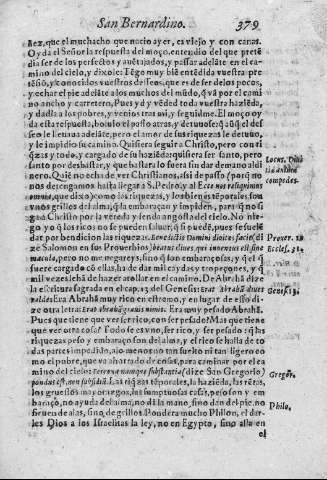 San Bernardino. 379
ñez, que el muchacho que nacio ayer, es viejo y con canas.
Oyda el Señor la respuesta del moço, entendio del que pretẽ
dia ser de los perfectos y auẽtajados, y passar adelãte en el ca
mino del cielo, y dixole: Tẽgo muy biẽ entẽdida vuestra pre
tẽsiõ, y conocidos vuestros desseos, que es de ser de los pocos,
y echar el pie adelãte a los muchos del mũdo, q̃ vã por el cami
no ancho y carretero, Pues yd y vẽded toda vuestra haziẽda,
y dadla a los pobres, y venios tras mi, y seguidme. El moço oy
da esta respuesta, boluio el rostro atras, y detuuose: q̃ aũq̃ el des
seo le lleuaua adelãte, pero el amor de sus riquezas le detuuo,
y le impidio su camino. Quisiera seguir a Christo, pero con ri
q̃zas y todo, y cargado de su haziẽda: quisiera ser santo, pero
santo por desbastar, y que hasta la losa fuera sin demano al di
nero. Quiẽ no echa de ver Christianos, assi de passo (porq̃ no
nos detengamos hasta llegar a S. Pedro, y al Ecce nos reliquimus
omnia, que dixo) como los riquezas, y los bienes tẽporales son
vnos grillos del alma, q̃ la embaraçan y impidẽ, para q̃ no si
ga a Christo por la vereda y senda angosta del cielo. No nie-
go yo q̃ los ricos no se pueden saluar, q̃ si puedẽ, pues se suelẽ
dar por bendicion las riquezas. Benedictio Domini diuites facit, di
ze Salomon en sus Prouerbios, beatus diues, qui inuentus est sine
macula, pero no me negareys, sino q̃ son embaraçosas, y q̃ el q̃
fuere cargado cõ ellas, ha de dar mil caydas y tropeçones, y q̃
mil vezes le hã de hazer atollar en el camino. De Abrahã dize
la escritura sagrada en el cap. 13. del Genesis: erat Abrahã diues
valde: Era Abrahã muy rico en estremo, y en lugar de esso di-
ze otra letra: erat abrahã grauis nimis. Era muy pesado Abrahã.
Pues que tiene que ver ser rico, con ser pesado? Mas que tiene
que ver otra cosa? Todo se es vno, ser rico, y ser pesado: q̃ las
riquezas peso y embaraço son del alma, y el rico se halla de to
das partes impedido,
mo el pobre, que va ahorrado de cosas, para caminar por el ca
mino del cielo: terrena namque substantia (dize San Gregorio)
pondus est, non subsidiũ. Las riq̃zas tẽporales, la haziẽda, las rẽtas,
los gruessos mayorazgos, las sumptuosas casas, peso son y em
baraço, no ayuda del alma, no dã la mano, sino dan del pie, no
siruen de alas, sino de grillos. Pondera mucho Philon, el dar-
les Dios a los Israelitas la ley, no en Egypto, sino alla en
el
Locus. Diui
tiæ animæ
compedes.
Prouer. 10
Eccles. 31.
Genes. 13.
Gregor.
Philo.